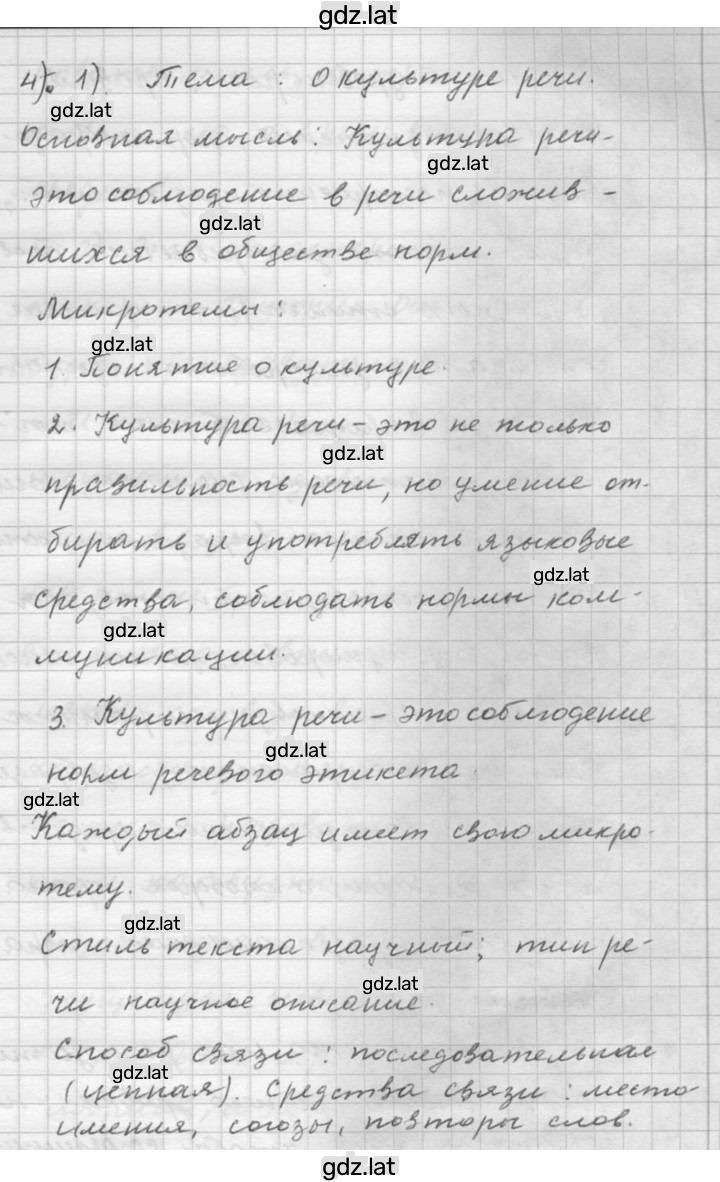 gdz.lat
4). 1). Тема: О культуре речи.
gdz.lat
Основная мысль: Культура речи-
gdz.lat
это соблюдение в речи сложив-
gdz.lat
шихся в обществе норм.
Микротемы:
gdz.lat
1. Понятие о культуре.
2. Культура речи - это не только
gdz.lat
правильность речи, но умение от-
бирать и употреблять языковые
gdz.lat
средства, соблюдать нормы ком-
gdz.lat
муникации.
3. Культура речи - это соблюдение
gdz.lat
норм речевого этикета.
gdz.lat
Каждый абзац имеет свою микро-
тему.
gdz.lat
Стиль текста научный; тип ре-
gdz.lat
чи научное описание.
Способ связи: последовательная
gdz.lat
(цепная). Средства связи: место
имения, союзы, повторы слов.
gdz.lat